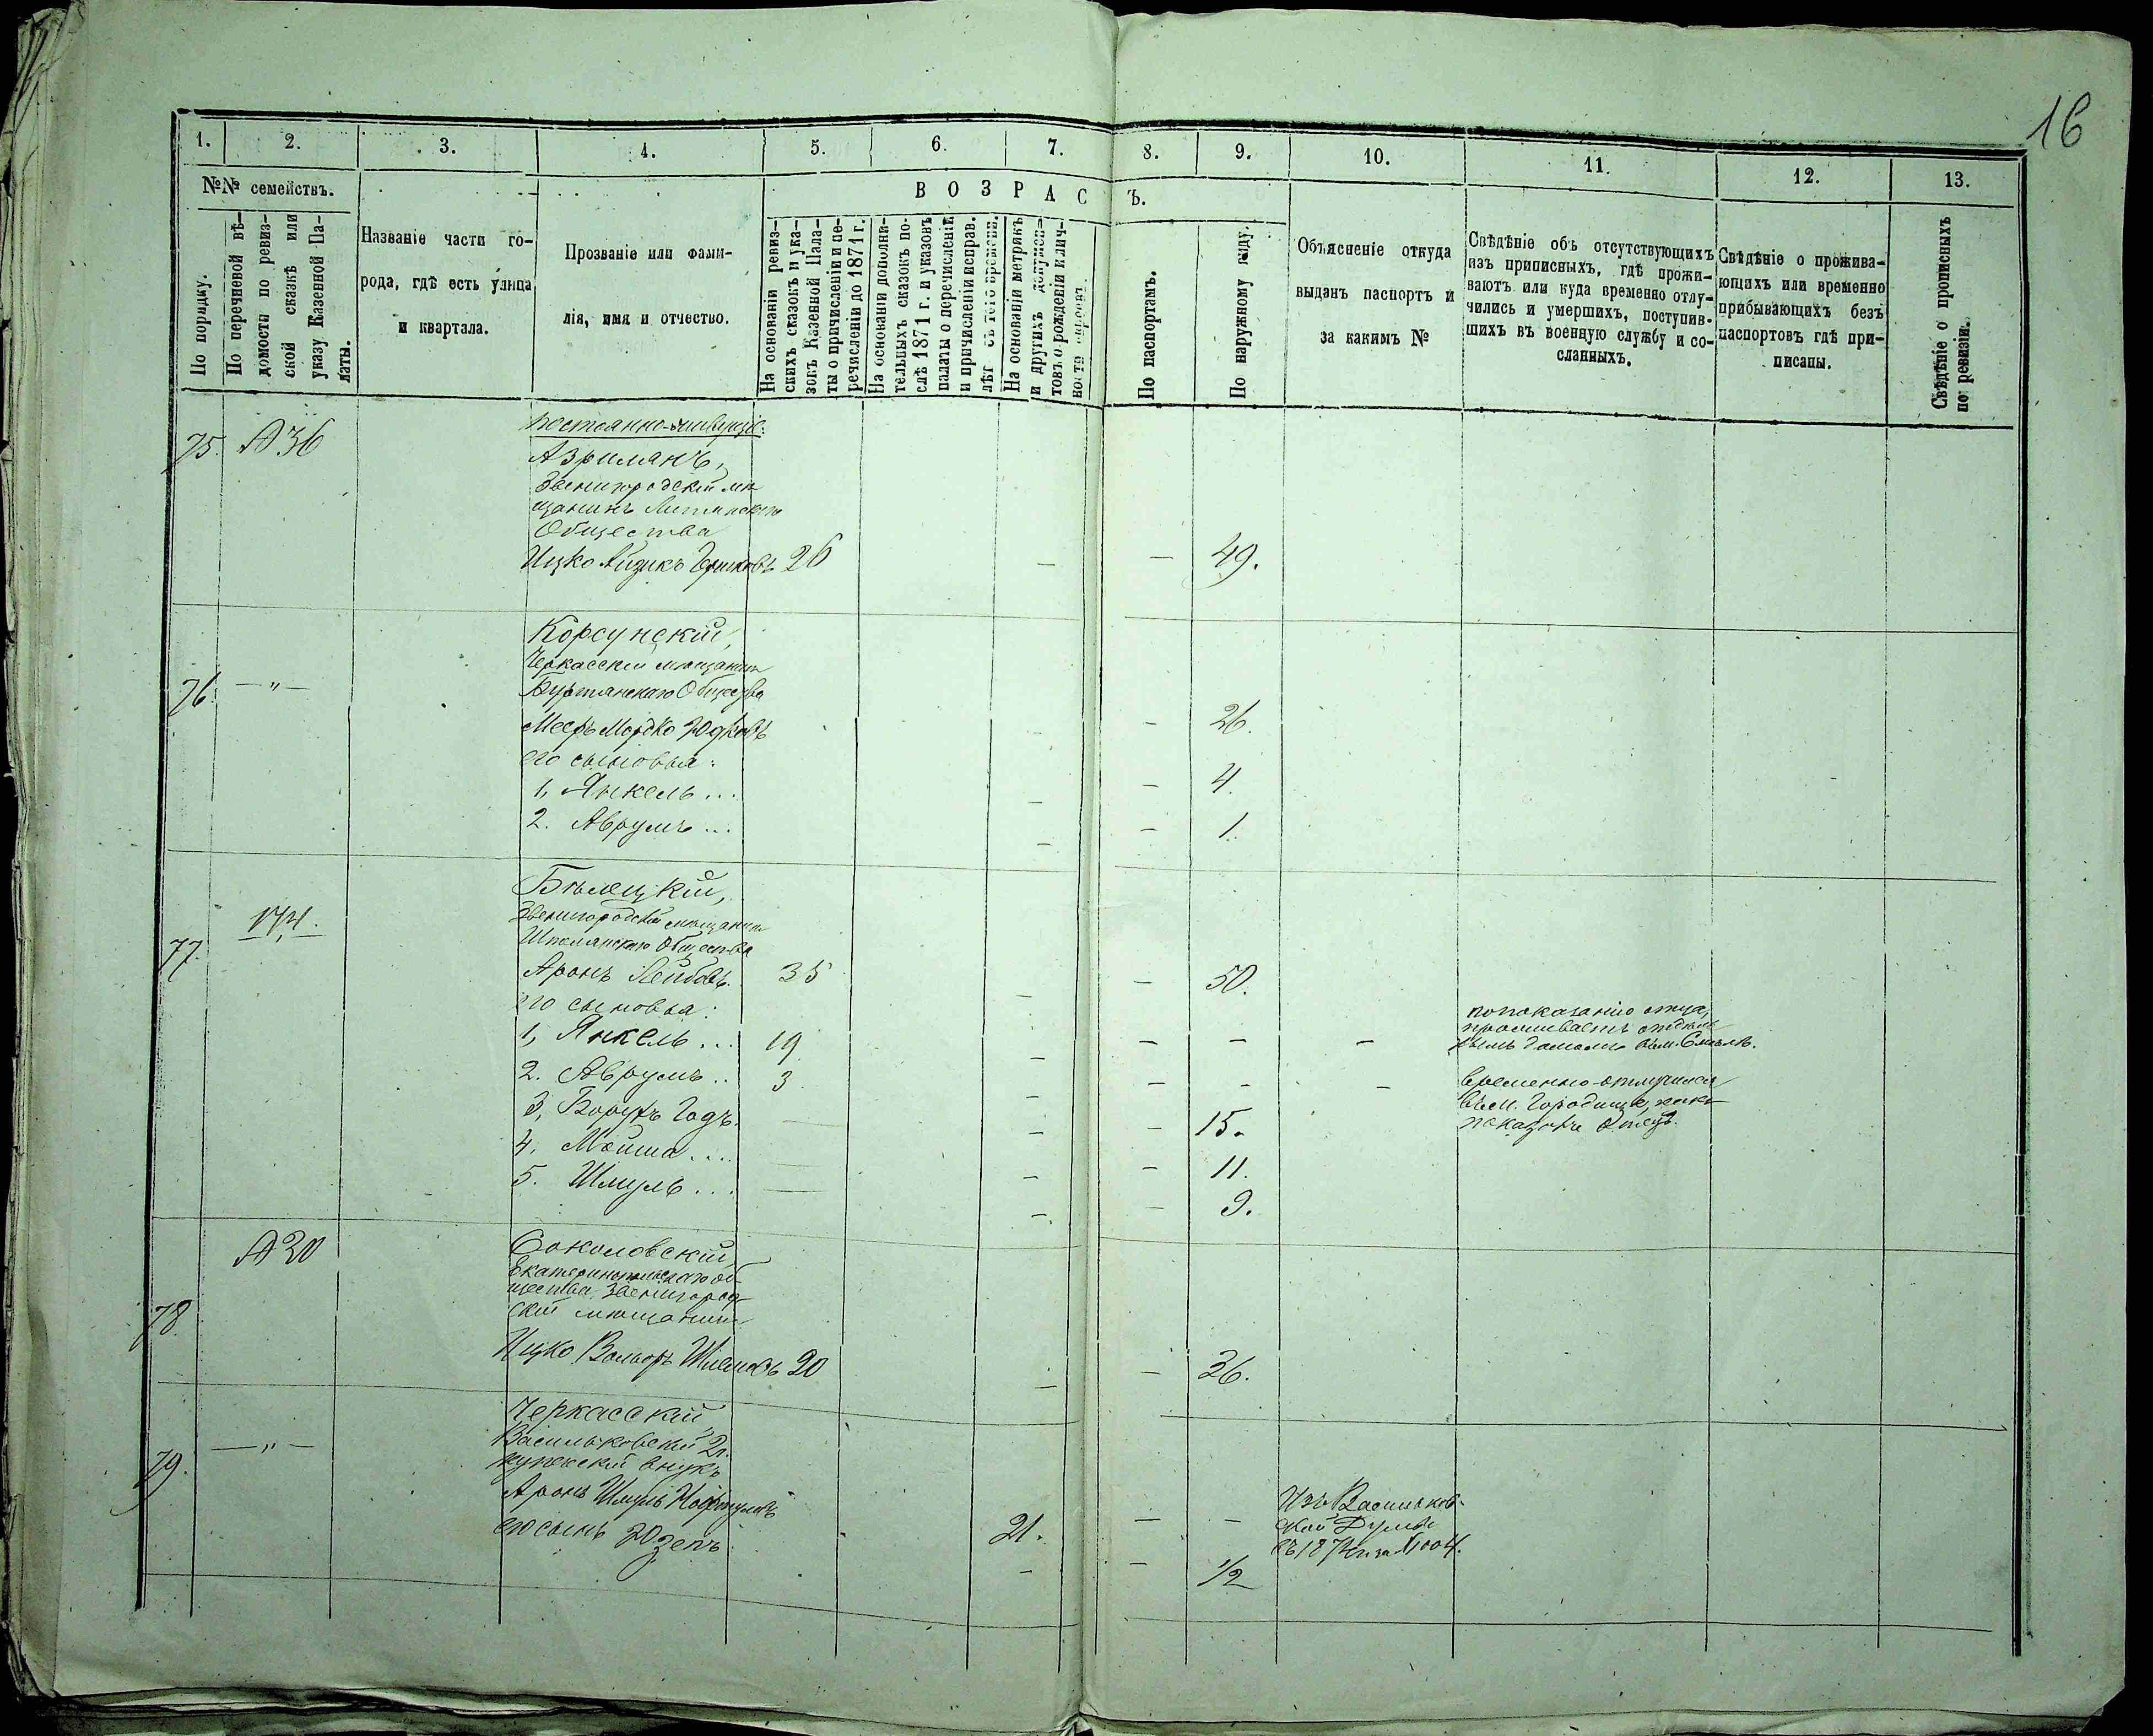 16
1. 2. 3. 4. 5. 6. 7. 8. 9. 10. 11. 12. 13.
№№ семействъ.
ВОЗРАС Ъ.
По порядку.
По перечневой вѣ-
домости по ревиз-
ской сказкѣ или
указу Казенной Па-
латы.
Названіе части го-
рода, гдѣ есть улица
и квартала.
Прозваніе или фами-
лія, имя и отчество.
На основаніи ревиз-
скихъ сказокъ и ука-
зовъ Казенной Пала-
ты о причисленіи и пе-
речисленіи до 1871 г.
На основаніи дополни-
тельныхъ сказокъ по-
слѣ 1871 г. и указовъ
палаты о перечисленіи
и причисленіи исправ.
лѣт съ того времени.
На основаніи метрикъ
и другихъ докумен-
товъ о рожденіи и лич-
ности
По паспортамъ.
По наружному виду.
Объясненіе откуда
выданъ паспортъ и
за какимъ №
Свѣдѣніе объ отсутствующихъ
изъ приписныхъ, гдѣ прожи-
ваютъ или куда временно отлу-
чились и умершихъ, поступив-
шихъ въ военную службу и со-
сланныхъ.
Свѣдѣніе о прожива-
ющихъ или временно
прибывающихъ безъ
паспортовъ гдѣ при-
писаны.
Свѣдѣніе о прописныхъ
по ревизіи.
75. А 36
Азриманъ,
Звенигородскій мѣ
щанинъ
Общества
Ицко Айзикъ 26 — — 49.
Корсунскій,
Черкасскій мѣщанинъ
76. — " — Буртянскаго Общества
Мееръ Мордко Юдковъ — — 26.
его сыновья:
1, Янкель... — — 4.
2. Аврумъ... — — 1.
Бѣлецкій,
174. Звенигородскій мѣщанинъ
77. Шполянскаго Общества
Аронъ Лейбовъ. 35 — — 50.
его сыновья:
1, Янкель... 19 — — — — по показанію отца,
проживаетъ отдѣль
нымъ домомъ въ м. Смѣлѣ.
2. Аврумъ.. 3 — — — — временно-отлучился
въ м. Городище, какъ
показалъ Отецъ.
3, Борухъ Гадъ. — — — 15.
4, Мойша.... — — — 11.
5. Шмуль... — — — 9.
А 20 Соколовскій
Екатеринопольскаго об-
щества Звенигород
78. скій мѣщанинъ
Ицко Вольфъ 20 — — 36.
Черкасскій
79. — " — Васильковскій 2 г.
купескій внукъ
Аронъ Шмуль 21. — — Изъ Васильков-
ской Думы
его сынъ Юзепъ — — 1/2